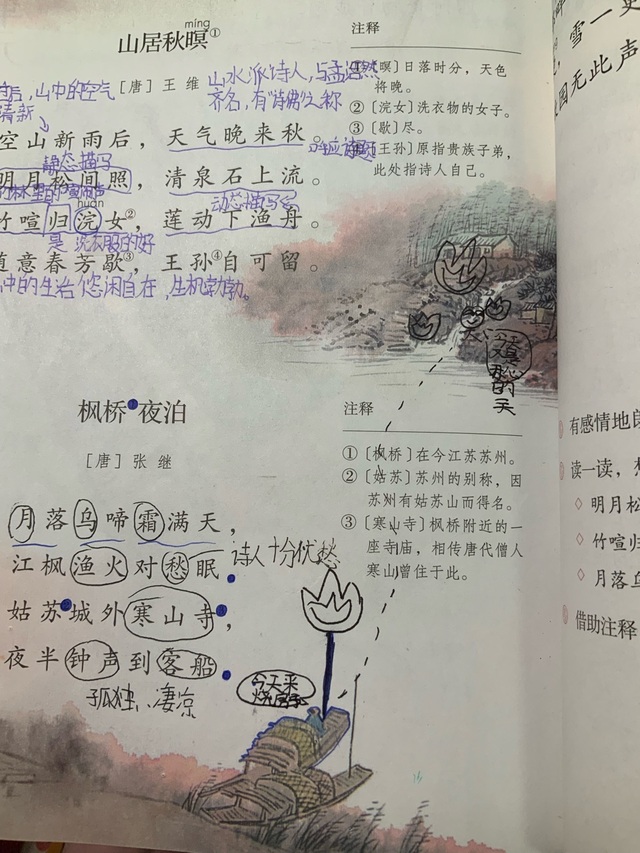 míng
山居秋暝①
[唐] 王 维
山水派诗人,与孟浩然
齐名,有"诗佛"之称
后,山中的空气
清新
空山新雨后，天气晚来秋。
静态描写
明月松间照，清泉石上流。
huàn
动态描写
竹喧归浣女②，莲动下渔舟。
洗衣服的
随意春芳歇③，王孙④自可留。
中的生活悠闲自在,生机勃勃。
注释
①〔暝〕日落时分，天色
将晚。
②〔浣女〕洗衣物的女子。
③〔歇〕尽。
④〔王孙〕原指贵族子弟，
此处指诗人自己。
的天
枫桥①夜泊
[唐] 张 继
月落乌啼霜满天，
江枫渔火对愁眠。
诗人十分忧愁
姑苏②城外寒山寺③，
夜半钟声到客船。
孤独、凄凉
今天来
注释
①〔枫桥〕在今江苏苏州。
②〔姑苏〕苏州的别称，因
苏州有姑苏山而得名。
③〔寒山寺〕枫桥附近的一
座寺庙，相传唐代僧人
寒山曾住于此。
雪一更
园无此声
有感情地
读一读，
◇ 明月松
◇ 竹喧归
◇ 月落乌
借助注释